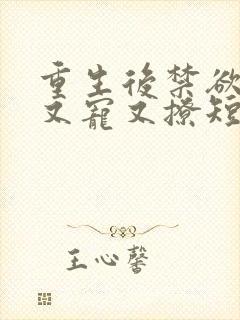 重生後禁欲
又寵又撩短
王心馨